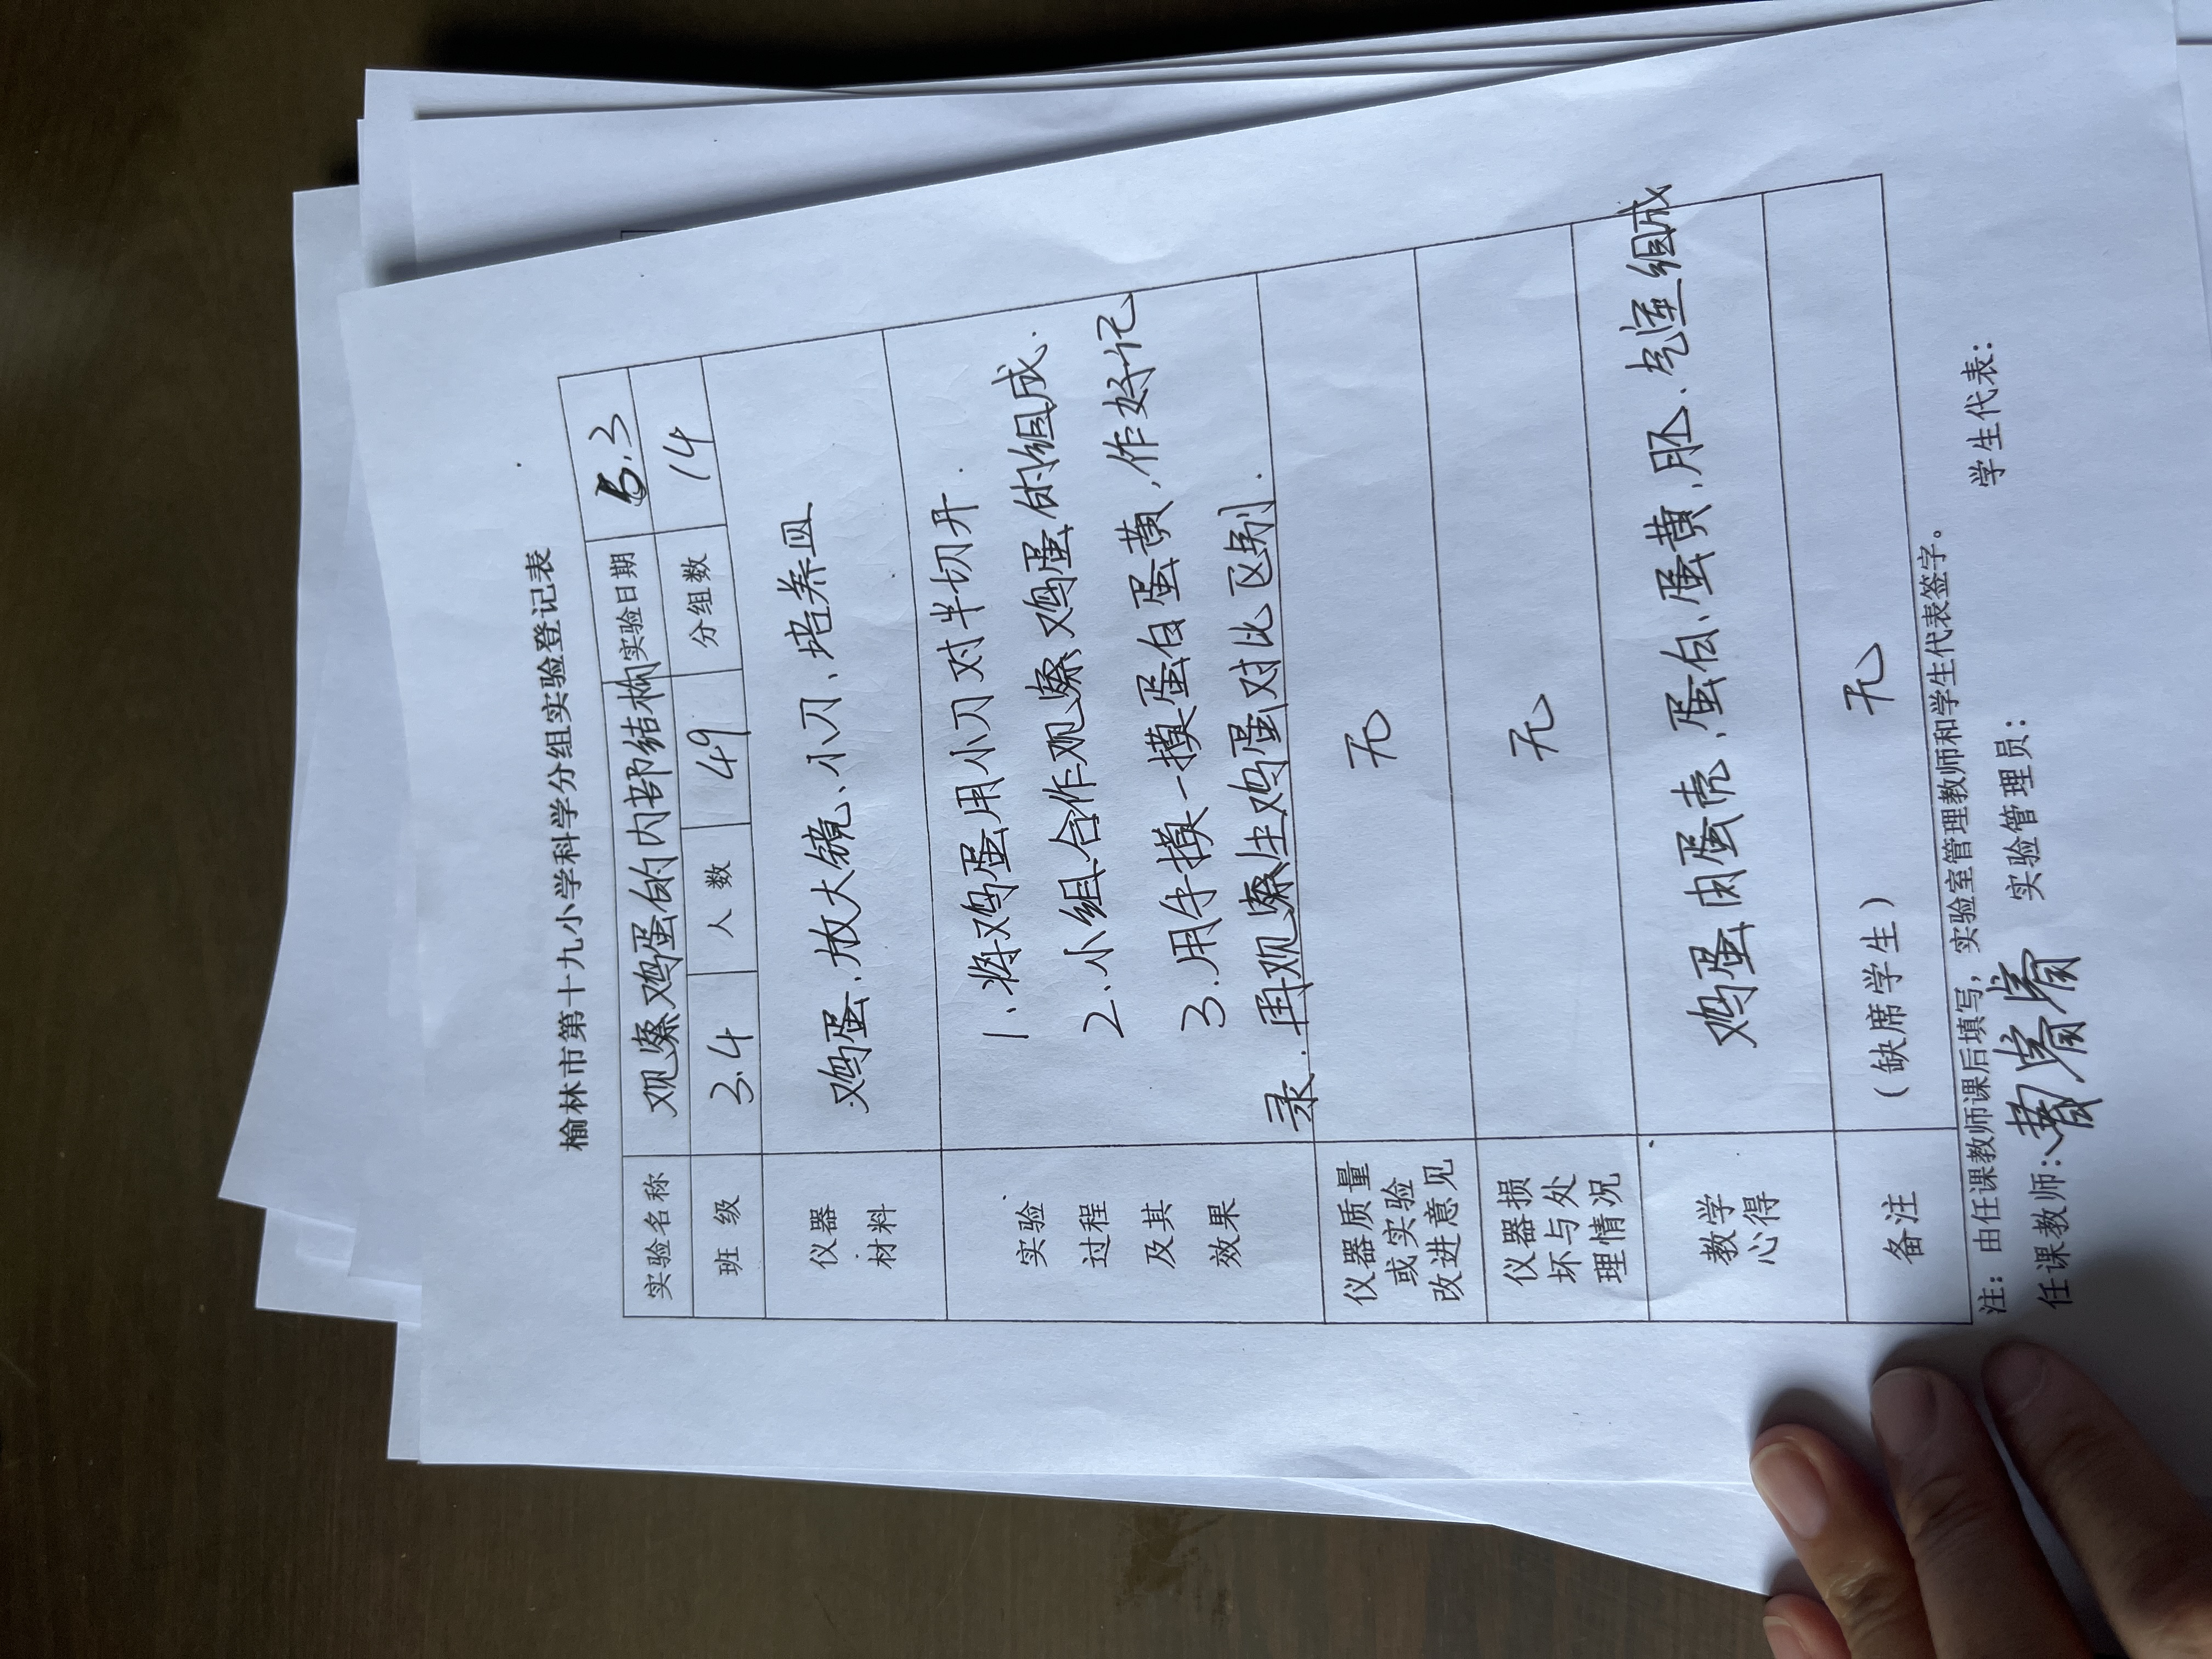 榆林市第十九小学科学分组实验登记表
实验名称 观察鸡蛋的内部结构 实验日期 5.3
班级 3.4 人数 49 分组数 14
仪器
材料
鸡蛋、放大镜、小刀、培养皿
实验
过程
及其
效果
1、将鸡蛋用小刀对半切开.
2、小组合作观察鸡蛋的组成、
3.用手摸一摸蛋白蛋黄,作好记
录.再观察生鸡蛋对比区别.
仪器质量
或实验
改进意见
无
仪器损
坏与处
理情况
无
教学
心得
鸡蛋由蛋壳、蛋白、蛋黄、胚、气室组成
备注 (缺席学生) 无
注：由任课教师课后填写，实验室管理教师和学生代表签字。
任课教师： 实验管理员： 学生代表：